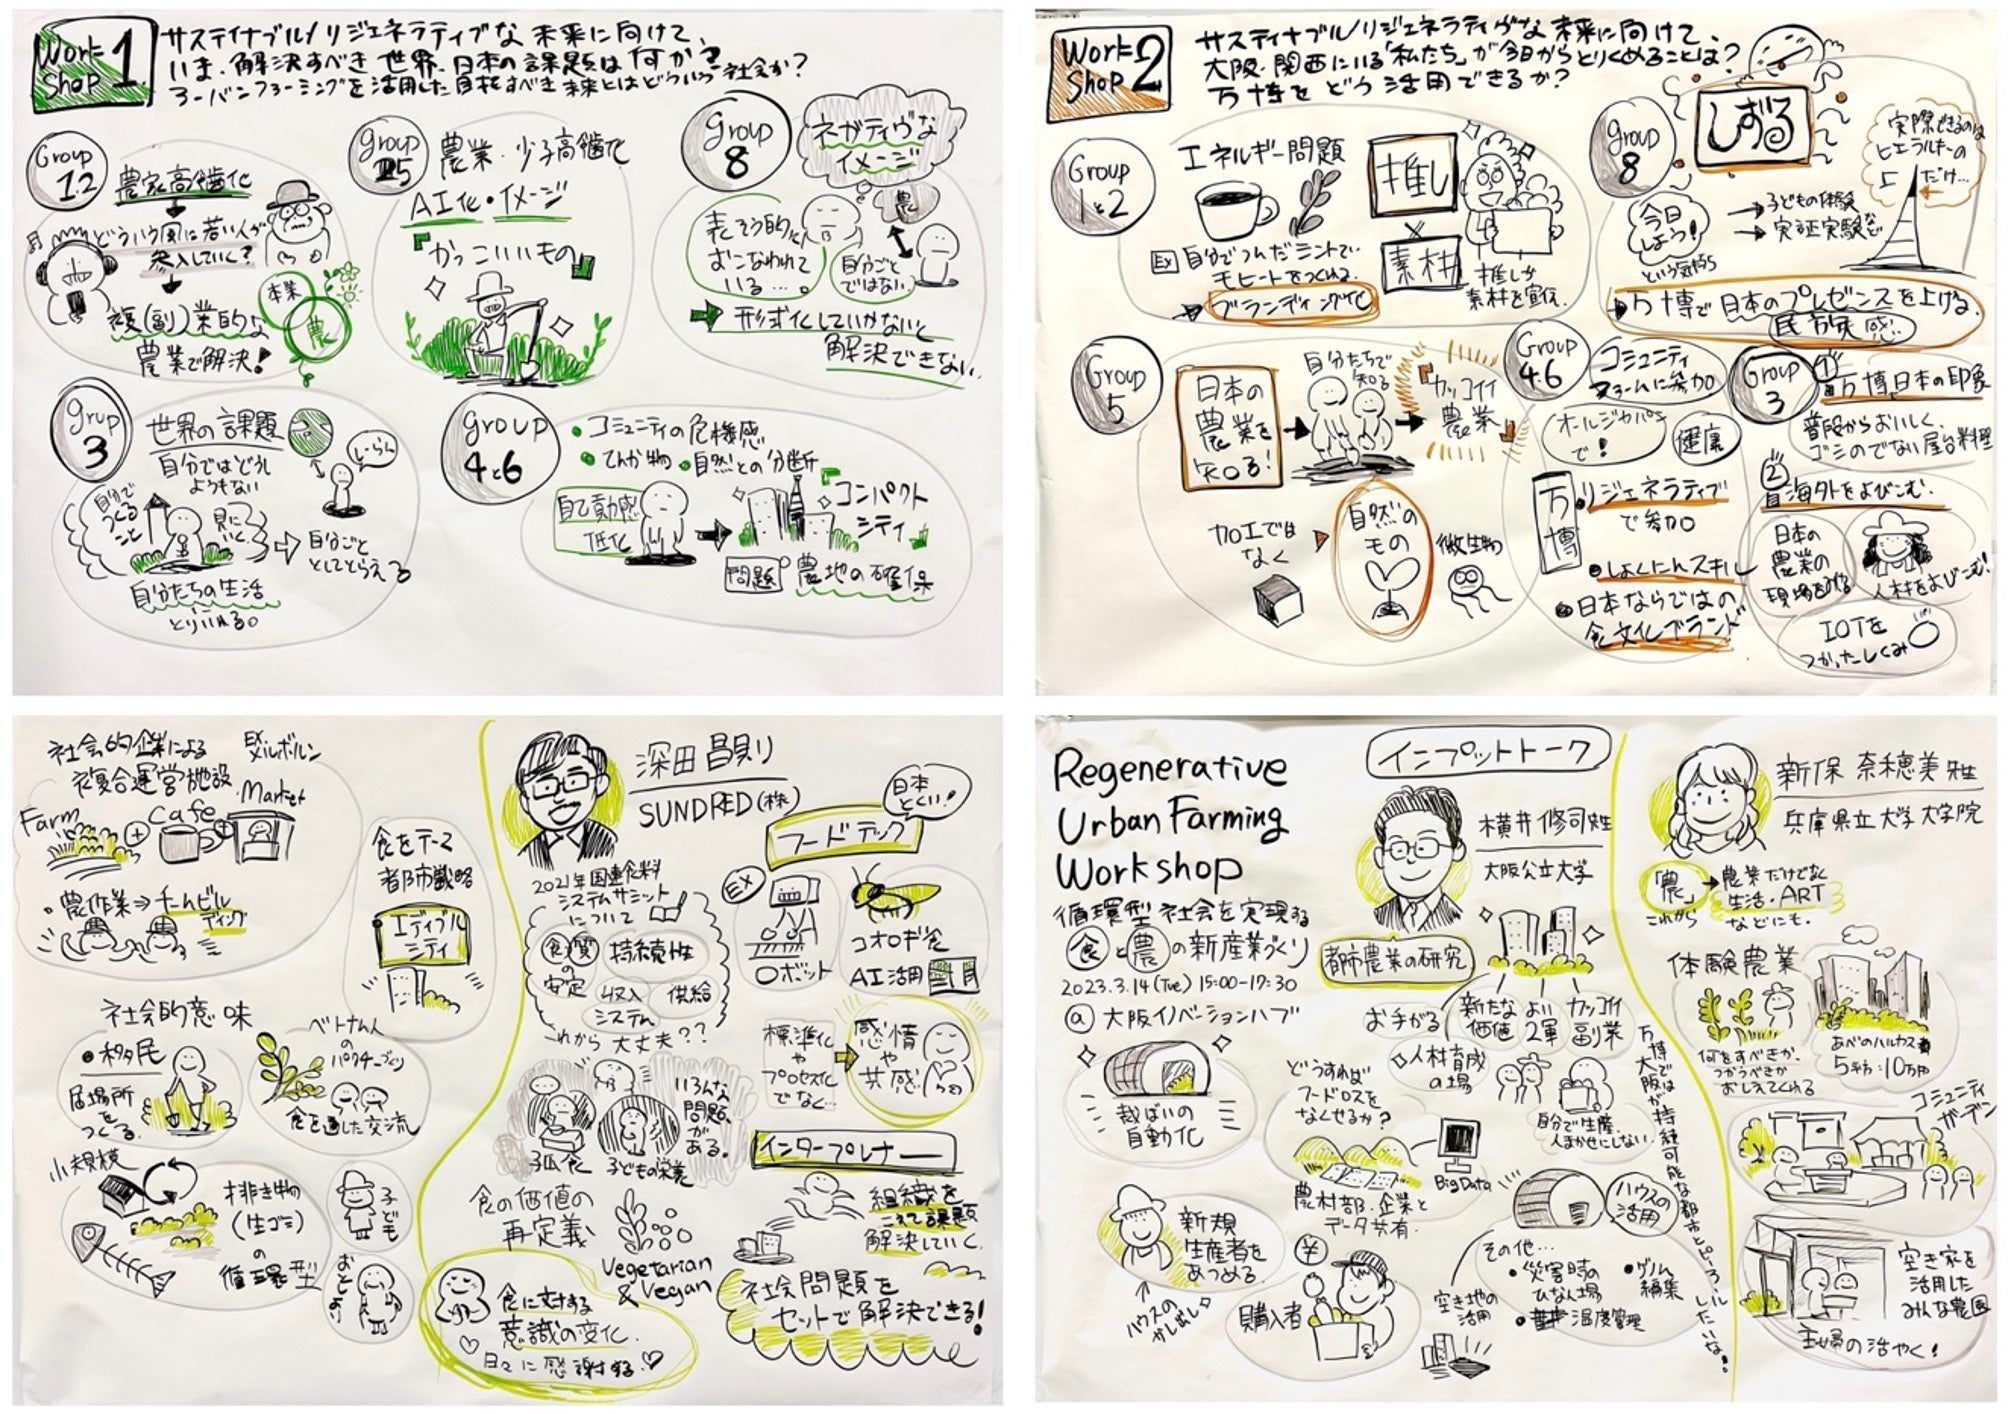 Work Shop 1
サステイナブル/リジェネラティブな未来に向けて、
いま、解決すべき世界、日本の課題は何か?
アーバンファーミングを活用した目指すべき未来とはどういう社会か?
Group 1.2
農家高齢化
どういう風に若い人が
参入していく?
複(副)業的な
農業で解決!
本業
農
農業・少子高齢化
AI化・イメージ
『かっこいいもの』
Group 8
ネガティヴな
イメージ
農
表そう的に
おこなわれて
いる…。
自分ごと
ではない
形式化していかないと
解決できない
Grup 3
世界の課題
自分ではどうし
ようもない
しーらん
自分で
つくる
こと
自分ごと
としてとらえる
自分たちの生活
とりいれる。
Group 4と6
・コミュニティの危機感
・てんか物 ・自然との分断
自己動感
低化
『コンパクト
シティ』
問題
農地の確保
Work Shop 2
サスティナブル/リジェネラティヴな未来に向けて、
大阪・関西にいる「私たち」が今日からとりくめることは?
万博をどう活用できるか?
Group 1と2
エネルギー問題
Ex 自分でつんだミントで、
モヒートをつくれる。
ブランディング化
推し
×
素材
推しが
素材を宣伝。
Group 8
しずる
今日
しよう!
という気持ち
子どもの体験
実証実験など
実際できるのは
ヒエラルキーの
上だけ…
万博で日本のプレゼンスを上げる。
Group 5
日本の
農業を
知る!
自分たちで
知る
『カッコイイ
農業』
加工では
なく
自然の
もの
微生物
Group 4.6
コミュニティ
ファームに参加
オールジャパン
で!
健康
万博
・リジェネラティブ
で参加
・しょくにんスキル
・日本ならではの
食文化ブランド
Group 3
① 万博、日本の印象
普段からおいしく、
ゴミのでない屋台料理
② 海外をよびこむ。
日本の
農業の
現場をみる
人材をよびこむ!
IOTを
つかったしくみ
社会的企業による
複合運営施設
メルボルン
Farm
Cafe
Market
・農作業⇒チームビル
ディング
食をテーマ
都市戦略
エディブル
シティ
社会的意味
・移民
居場所
をつくる
ベトナム人
のパクチーづくり
食を通した交流
小規模
排き物
(生ゴミ)
の
循環型
子ども
おとしより
深田昌則
SUNDRED(株)
2021年国連食料
システムサミット
について
食 質
の
安定
持続性
収入
供給
システム
これから大丈夫??
孤食
子どもの栄養
いろんな
問題
がある。
食の価値の
再定義
Vegetarian
&
Vegan
食に対する
意識の変化
日々に感謝する
日本
とくい!
フードテック
EX
ロボット
コオロギ食
AI活用
標準化
や
プロセス化
でなく…
感情
や
共感
インタープレナー
組織を
こえて課題
解決していく
社会問題を
セットで解決できる!
Regenerative
Urban Farming
Workshop
循環型社会を実現する
食と農の新産業づくり
2023.3.14(Tue) 15:00-17:30
@大阪イノベーションハブ
栽ばいの
自動化
新規
生産者を
あつめる
ハウスの
かし出し
¥
購入者
インプットトーク
横井修司先生
大阪公立大学
都市農業の研究
お手がる
新たな
価値
よい
2軍
カッコイイ
副業
人材育成
の場
自分で生産
人まかせにしない
どうすれば
フードロスを
なくせるか?
農村部・企業と
データ共有
Big Data
ハウスの
活用
その他…
・災害時の
ひなん場
・ゲノム
編集
・温度管理
空き地の
活用
万博で
大阪が持続可能な都市とピーアールしたいな!
新保奈穂美先生
兵庫県立大学大学院
「農」
これから
農業だけでなく
生活・ART
などにも。
体験農業
何をすべきか、
つかうべきか
おしえてくれる
あべのハルカス
5平方:10万円
コミュニティ
ガーデン
空き家を
活用した
みんな農園
主婦の活やく!